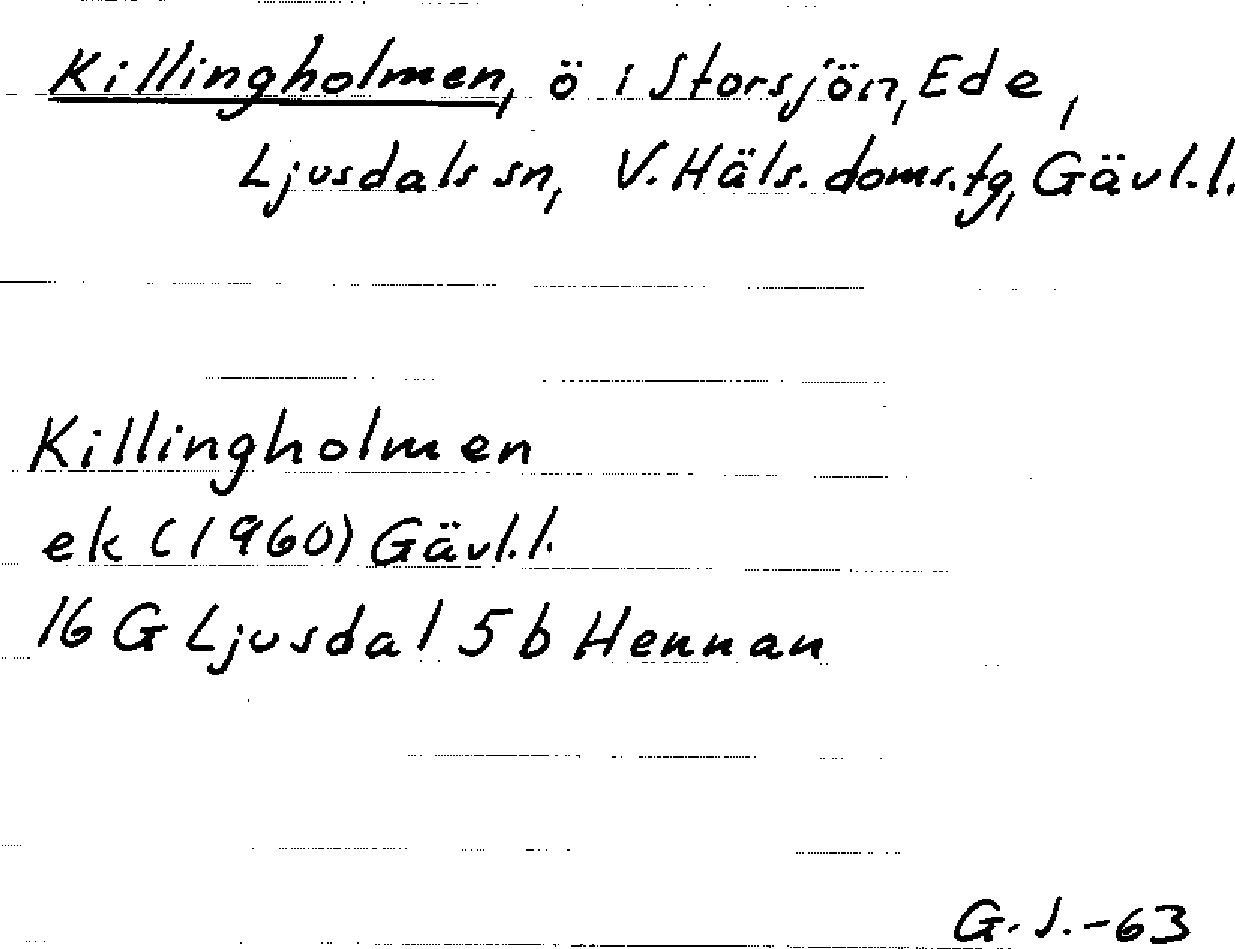 Killingholmen, ö i Storsjön, Ede,
Ljusdals sn, V. Häls. doms. tg, Gävl. l.
Killingholmen
ek (1960) Gävl. l.
16 G Ljusdal 5 b Hennan
G. J. -63